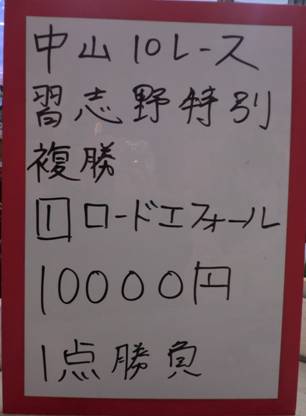 中山10レース
習志野特別
複勝
1 ロードエフォール
10000円
1点勝負